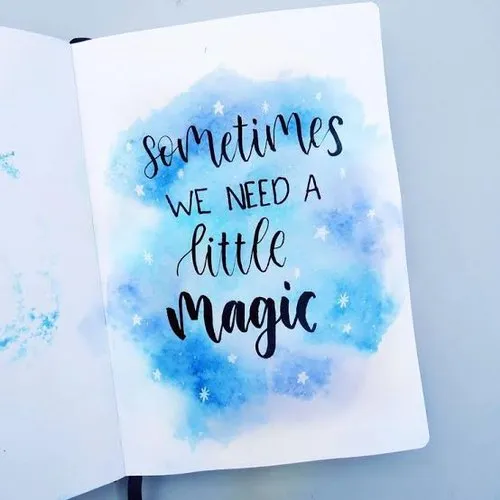 sometimes
WE NEED A
little
magic